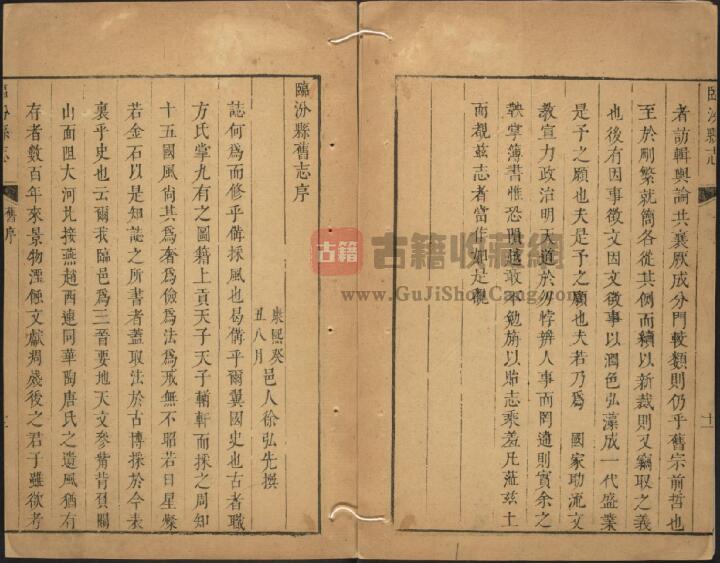 者訪輯輿論共襄厥成分門較類則仍乎舊宗前哲也
至於刪繁就簡各從其例而續以新裁則又竊取之義
也後有因事徵文因文徵事以潤色弘藻成一代盛業
是予之願也夫是予之願也夫若乃為 國家助流文
教宣力政治明天道於勿悖辨人事而罔遺則實余之
鞅掌簿書惟恐隕越敢不勉旃以貽志乘羞凡蒞茲土
而覩茲志者當作如是觀
臨汾縣志
十一
臨汾縣舊志序
康熙癸丑八月
邑人徐弘先撰
誌何為而修乎備採風也曷備乎爾翼國史也古者職
方氏掌九有之圖籍上貢天子天子輶軒而採之周知
十五國風尚其為奢為儉為法為戒無不昭若日星粲
若金石以是知誌之所書者蓋取法於古博採於今表
裏乎史也云爾我臨邑為三晉要地天文參觜背負關
山面阻大河北接燕趙西連同華陶唐氏之遺風猶有
存者數百年來景物湮倾文獻凋殘後之君子雖欲考
臨汾縣志
舊序
古籍
古籍收藏網
www.GuJiShouCang.com